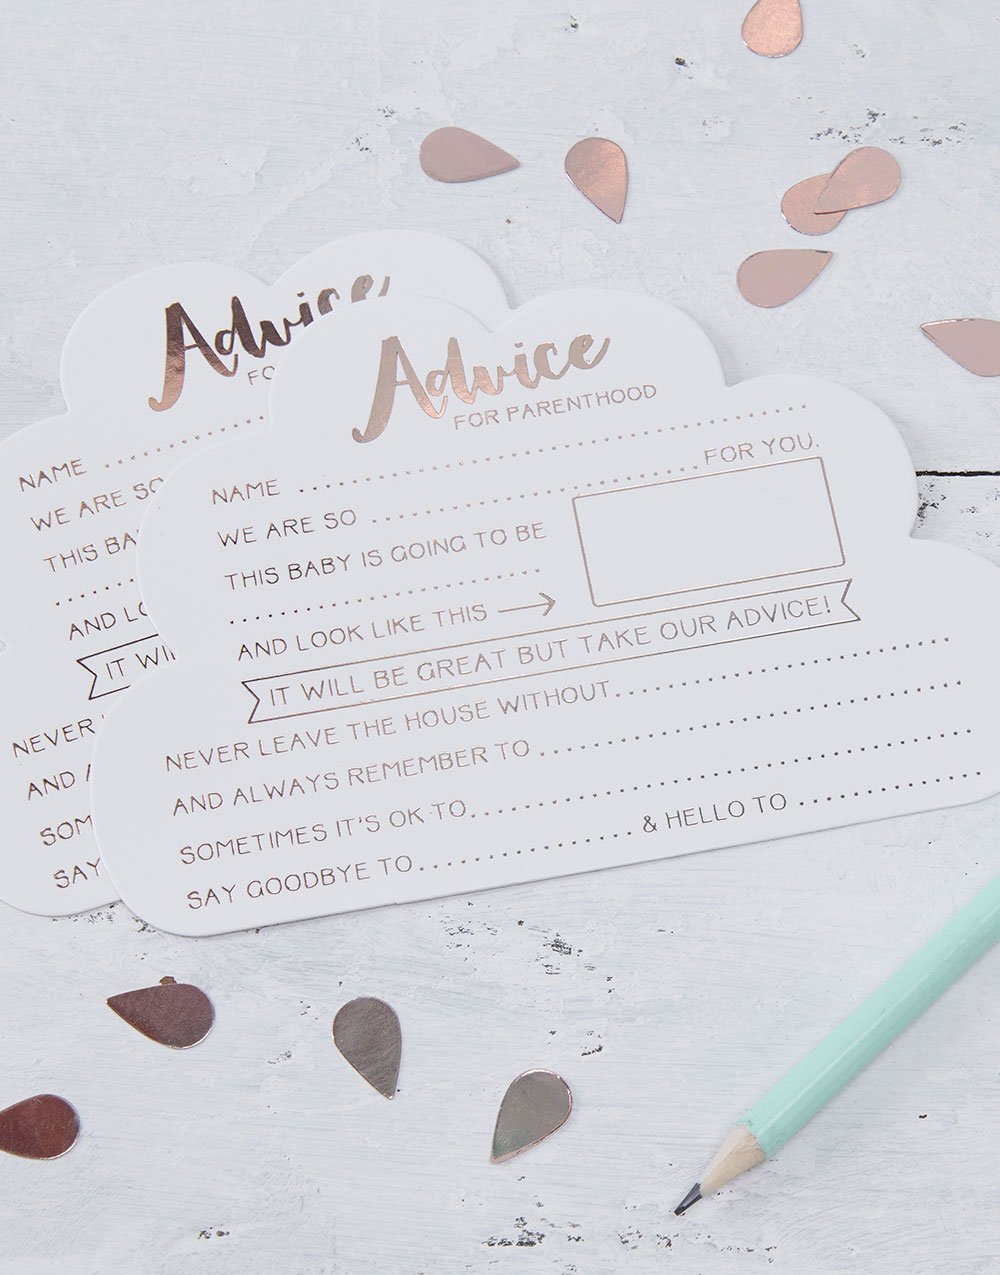 Advice
FO
NAME
WE ARE SO
THIS BA
AND LO
IT WI
NEVER
AND A
SOM
SAY
Advice
FOR PARENTHOOD
NAME ........................................
WE ARE SO ........................ FOR YOU.
THIS BABY IS GOING TO BE
........................
AND LOOK LIKE THIS →
IT WILL BE GREAT BUT TAKE OUR ADVICE!
NEVER LEAVE THE HOUSE WITHOUT........................
AND ALWAYS REMEMBER TO ........................
SOMETIMES IT'S OK TO........................
SAY GOODBYE TO.................. & HELLO TO ..............